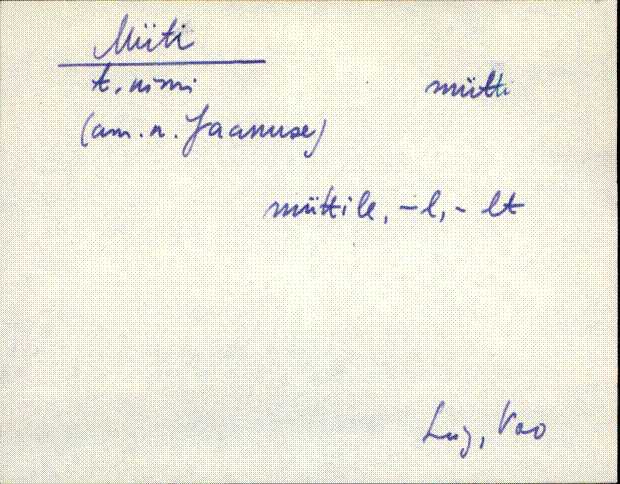 Müti
t. nimi mütti
(am. n. Jaanuse)
müttile, -l, - lt
Lüg, Vao